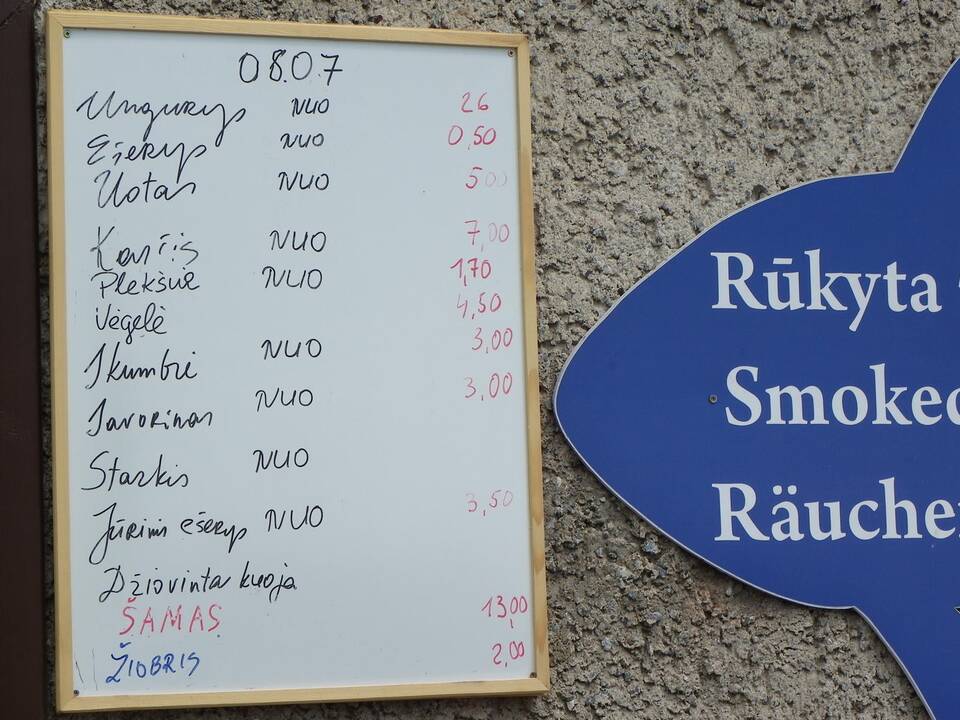 08.07
Ungurys NUO 26
Ešerys NUO 0,50
Uotas NUO 500
Karšis NUO 7,00
Plekšnė NUO 1,70
Vėgėlė 4,50
Skumbrė NUO 3,00
Savorinas NUO 3,00
Starkis NUO
Jūrinis ešerys NUO 3,50
Džiovinta kuoja
ŠAMAS 13,00
ŽIOBRIS 2,00
Rūkyta
Smoked
Räucher